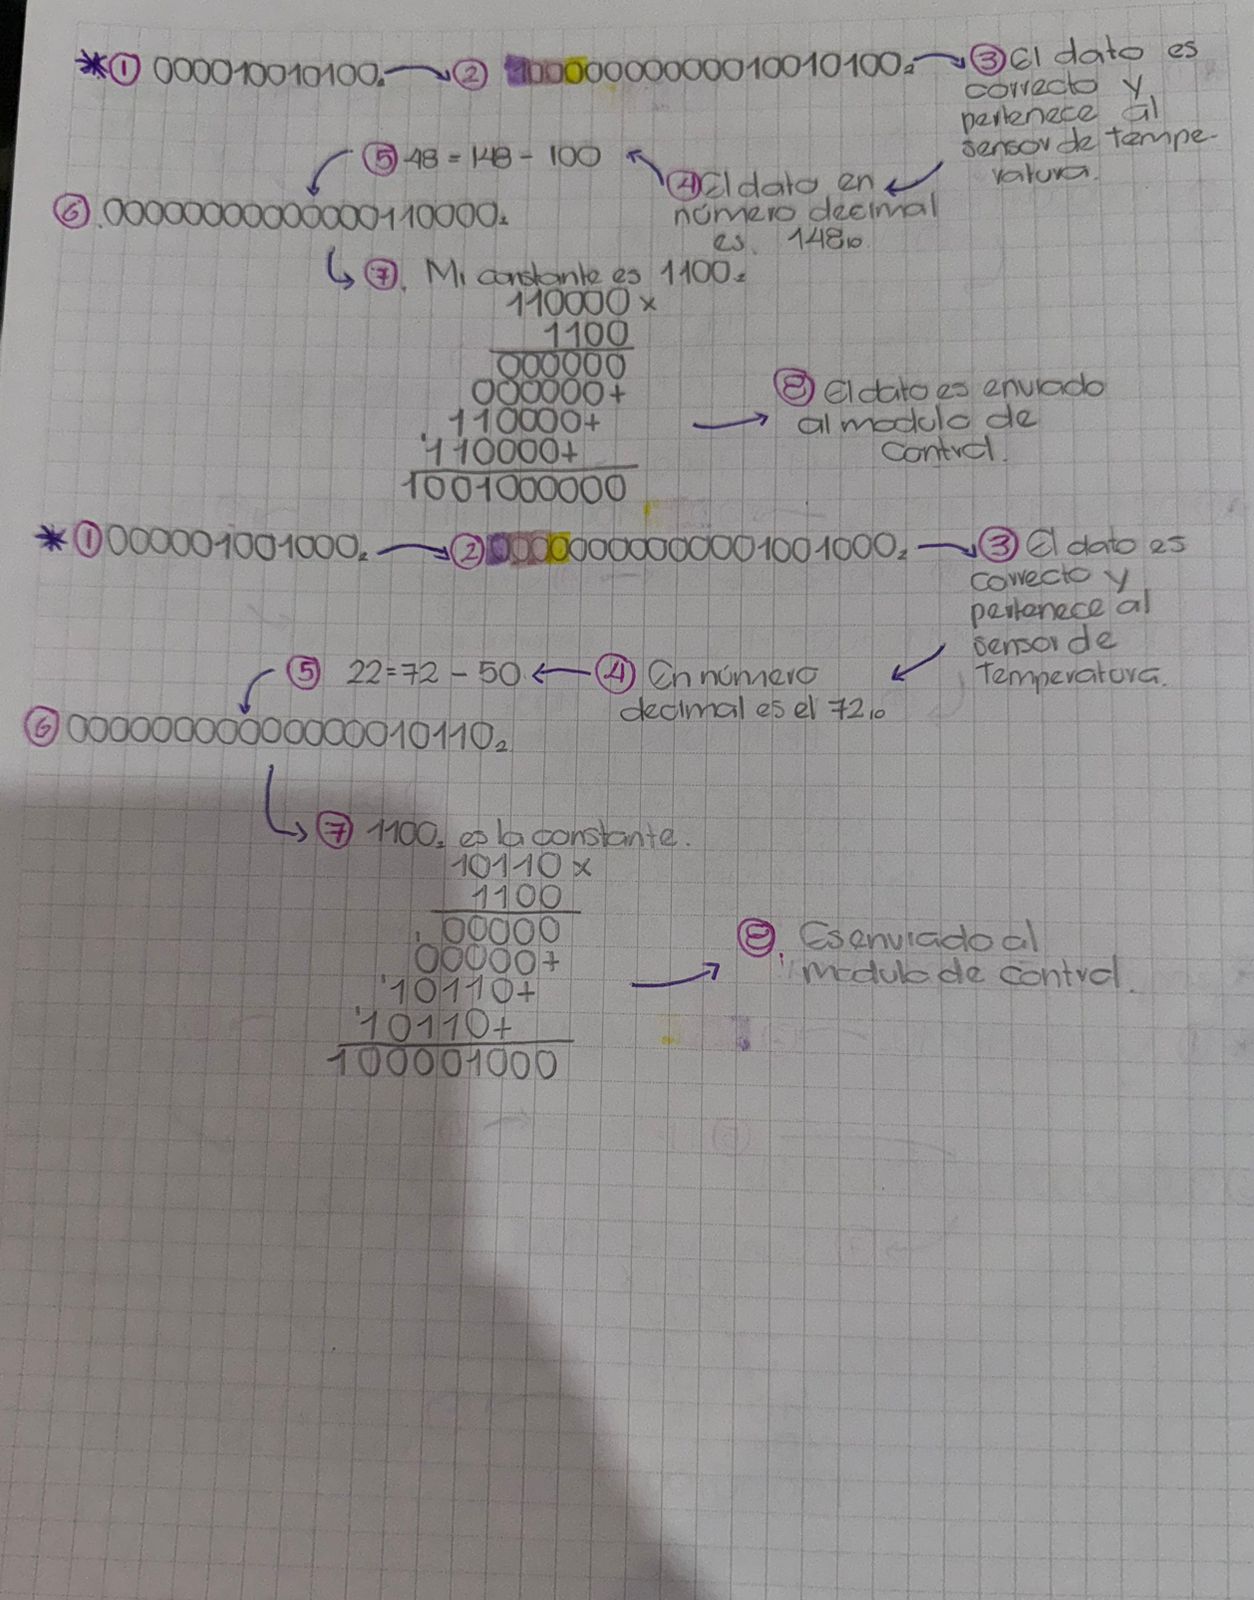 *① 000010010100₂ → ② 1000000000000010010100₂ → ③ El dato es
correcto y
pertenece al
sensor de tempe-
ratura.
④ El dato en
número decimal
es 148₁₀
⑤ 48 = 148 - 100
⑥ 0000000000000000110000₂
⑦ Mi constante es 1100₂
110000 x
1100
000000
000000+
110000+
110000+
1001000000
⑧ El dato es enviado
al modulo de
control.
*① 000001001000₂ → ② 0000000000000001001000₂ → ③ El dato es
correcto y
pertenece al
sensor de
temperatura.
④ En número
decimal es el 72₁₀
⑤ 22 = 72 - 50
⑥ 0000000000000000010110₂
⑦ 1100₂ es la constante.
10110 x
1100
00000
00000+
10110+
10110+
100001000
⑧ Es enviado al
modulo de control.